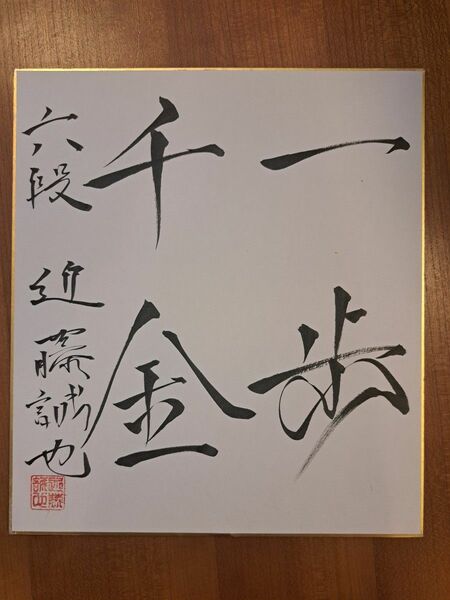 一歩
千金
六段 近藤誠也